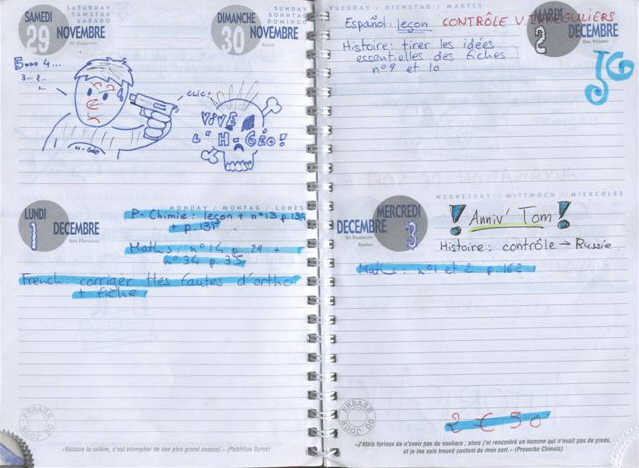 SAMEDI
29
NOVEMBRE
SATURDAY
SAMSTAG
SABADO
DIMANCHE
30
NOVEMBRE
SUNDAY
SONNTAG
DOMINGO
3..2..
CLIC!
VIVE
L'H-GÉO!
H-GÉO
LUNDI
1
DECEMBRE
MONDAY / MONTAG / LUNES
P-Chimie: leçon + n°13 p.
+ p. 137
Maths: n°
n°34 p.
French: corriger ttes fautes d'ortho
+ fiche
(Publilius Syrus)
TUESDAY / DIENSTAG / MARTES
MARDI
2
DECEMBRE
Español: leçon CONTRÔLE V IRREGULIERS
Histoire: tirer les idées
essentielles des fiches
n°9 et 10
MERCREDI
3
DECEMBRE
WEDNESDAY / MITTWOCH / MIERCOLES
! Anniv' Tom !
Histoire: contrôle → Russie
Maths: n°1 et 2 p. 162
2 € 50
«J'étais furieux de n'avoir pas de souliers ; alors j'ai rencontré un homme qui n'avait pas de pieds,
et je me suis trouvé content de mon sort.» (Proverbe Chinois)